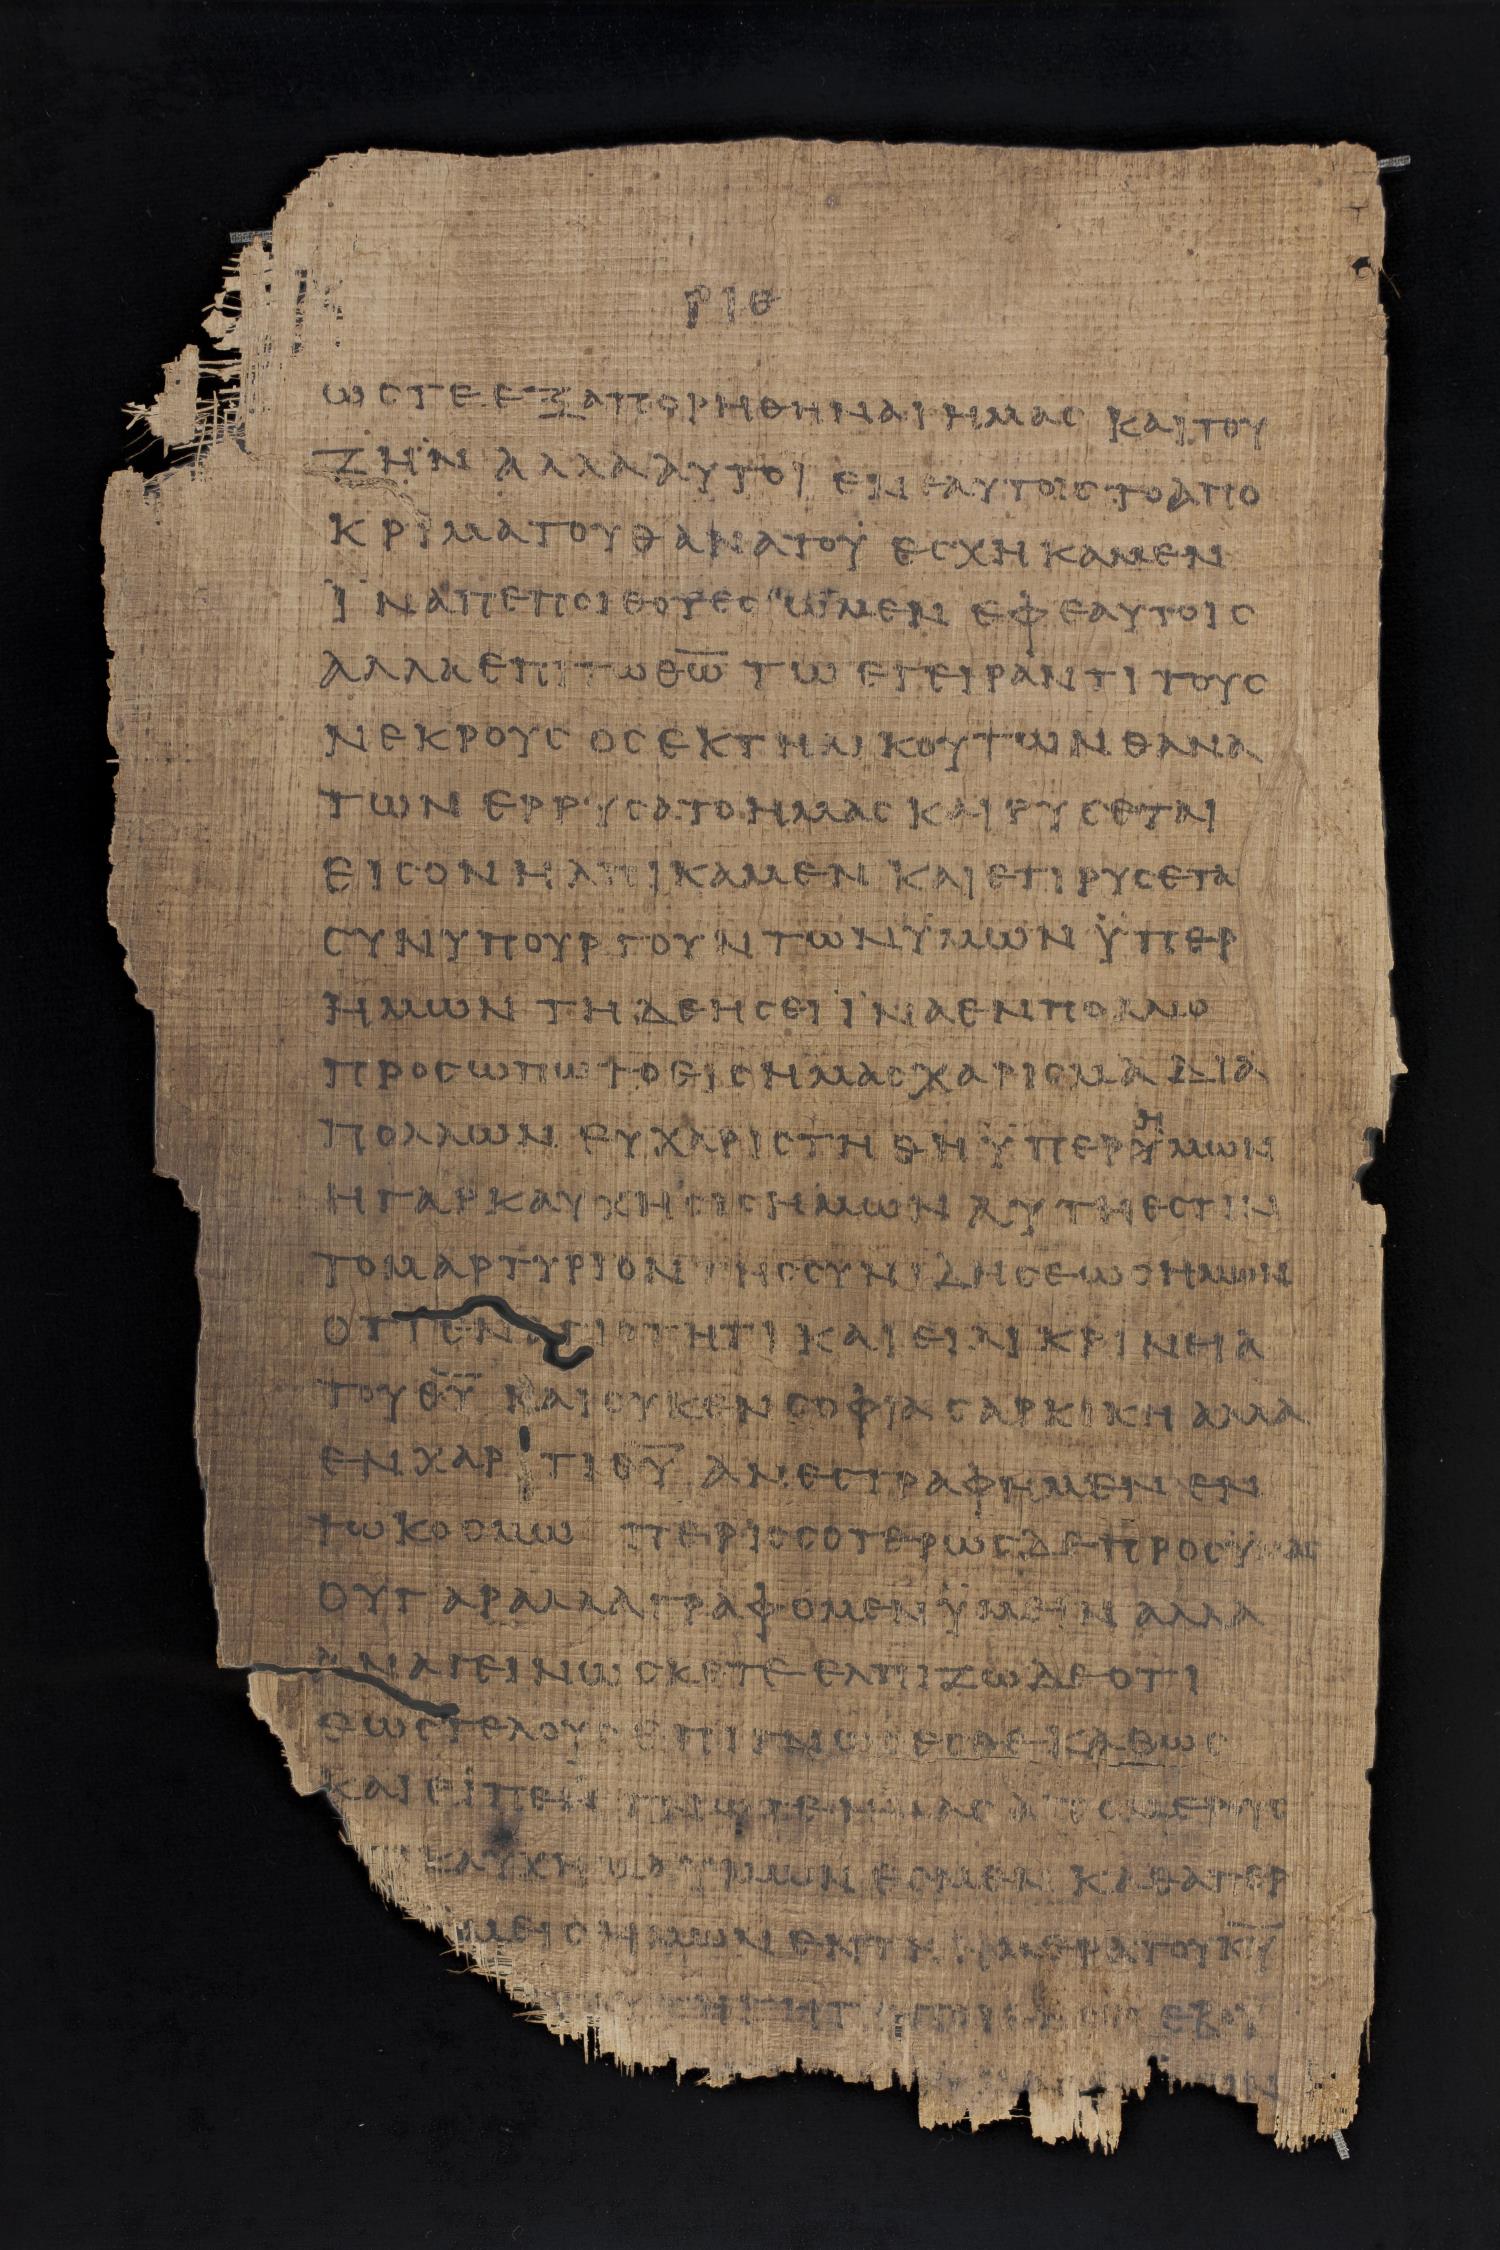 ΡΙΘ
ΩCΤΕ ΕΞΑΠΟΡΗΘΗΝΑΙ ΗΜΑC ΚΑΙ ΤΟΥ
ΖΗΝ ΑΛΛΑ ΑΥΤΟΙ ΕΝ ΕΑΥΤΟΙC ΤΟ ΑΠΟ
ΚΡΙΜΑ ΤΟΥ ΘΑΝΑΤΟΥ ΕCΧΗΚΑΜΕΝ
ΪΝΑ ΠΕΠΟΙΘΟΤΕC ΩΜΕΝ ΕΦ ΕΑΥΤΟΙC
ΑΛΛΑ ΕΠΙ ΤΩ Θ̅Ω̅ ΤΩ ΕΓΕΙΡΑΝΤΙ ΤΟΥC
ΝΕΚΡΟΥC ΟC ΕΚ ΤΗΛΙΚΟΥΤΩΝ ΘΑΝΑ
ΤΩΝ ΕΡΡΥCΑΤΟ ΗΜΑC ΚΑΙ ΡΥCΕΤΑΙ
ΕΙC ΟΝ ΗΛΠΙΚΑΜΕΝ ΚΑΙ ΕΤΙ ΡΥCΕΤΑ
CΥΝΥΠΟΥΡΓΟΥΝΤΩΝ ΫΜΩΝ ΫΠΕΡ
ΗΜΩΝ ΤΗ ΔΕΗCΕΙ ΪΝΑ ΕΝ ΠΟΛΛΩ
ΠΡΟCΩΠΩ ΤΟ ΕΙC ΗΜΑC ΧΑΡΙCΜΑ ΔΙΑ
ΠΟΛΛΩΝ ΕΥΧΑΡΙCΤΗΘΗ ΫΠΕΡ ΫΜΩΝ
Η ΓΑΡ ΚΑΥΧΗCΙC ΗΜΩΝ ΑΥΤΗ ΕCΤΙΝ
ΤΟ ΜΑΡΤΥΡΙΟΝ ΤΗC CΥΝΙΔΗCΕΩC ΗΜΩΝ
ΟΤΙ ΕΝ ΑΓΙΟΤΗΤΙ ΚΑΙ ΕΙΛΙΚΡΙΝΗΑ
ΤΟΥ Θ̅Υ̅ ΚΑΙ ΟΥΚ ΕΝ CΟΦΙΑ CΑΡΚΙΚΗ ΑΛΛΑ
ΕΝ ΧΑΡΙΤΙ Θ̅Υ̅ ΑΝΕCΤΡΑΦΗΜΕΝ ΕΝ
ΤΩ ΚΟCΜΩ ΠΕΡΙCCΟΤΕΡΩC ΔΕ ΠΡΟC ΫΜΑC
ΟΥ ΓΑΡ ΑΛΛΑ ΓΡΑΦΟΜΕΝ ΫΜΕΙΝ ΑΛΛΑ
Α ΑΝΑΓΕΙΝΩCΚΕΤΕ ΕΛΠΙΖΩ ΔΕ ΟΤΙ
ΕΩC ΤΕΛΟΥC ΕΠΙΓΝΩCΕCΘΕ ΚΑΘΩC
ΚΑΙ ΕΠΕΓΝΩΤΕ ΗΜΑC ΑΠΟ ΜΕΡΟΥC
ΚΑΥΧΗΜΑ ΫΜΩΝ ΕCΜΕΝ ΚΑΘΑΠΕΡ
ΜΕΙC ΗΜΩΝ ΕΝ ΤΗ ΗΜΕΡΑ ΤΟΥ Κ̅Υ̅
ΕΒΟΥ